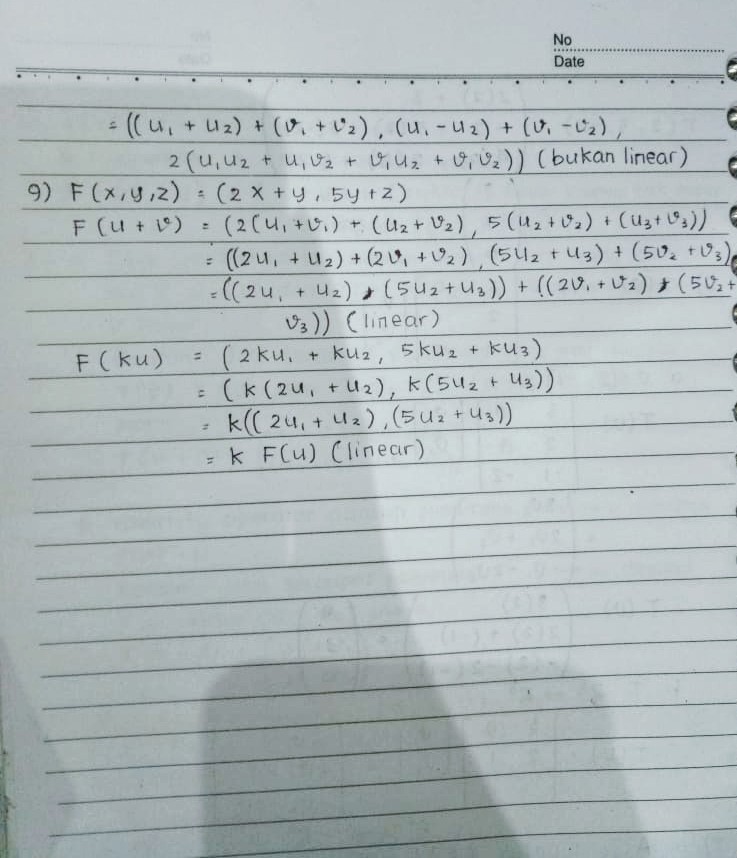 No
Date
= ((u₁ + u₂) + (v₁ + v₂), (u₁ - u₂) + (v₁ - v₂),
2(u₁u₂ + u₁v₂ + v₁u₂ + v₁v₂)) (bukan linear)
9) F(x,y,z) = (2x + y, 5y + z)
F(u + v) = (2(u₁ + v₁) + (u₂ + v₂), 5(u₂ + v₂) + (u₃ + v₃))
= ((2u₁ + u₂) + (2v₁ + v₂), (5u₂ + u₃) + (5v₂ + v₃)
= ((2u₁ + u₂), (5u₂ + u₃)) + ((2v₁ + v₂), (5v₂ +
v₃)) (linear)
F(ku) = (2ku₁ + ku₂, 5ku₂ + ku₃)
= (k(2u₁ + u₂), k(5u₂ + u₃))
= k((2u₁ + u₂), (5u₂ + u₃))
= k F(u) (linear)